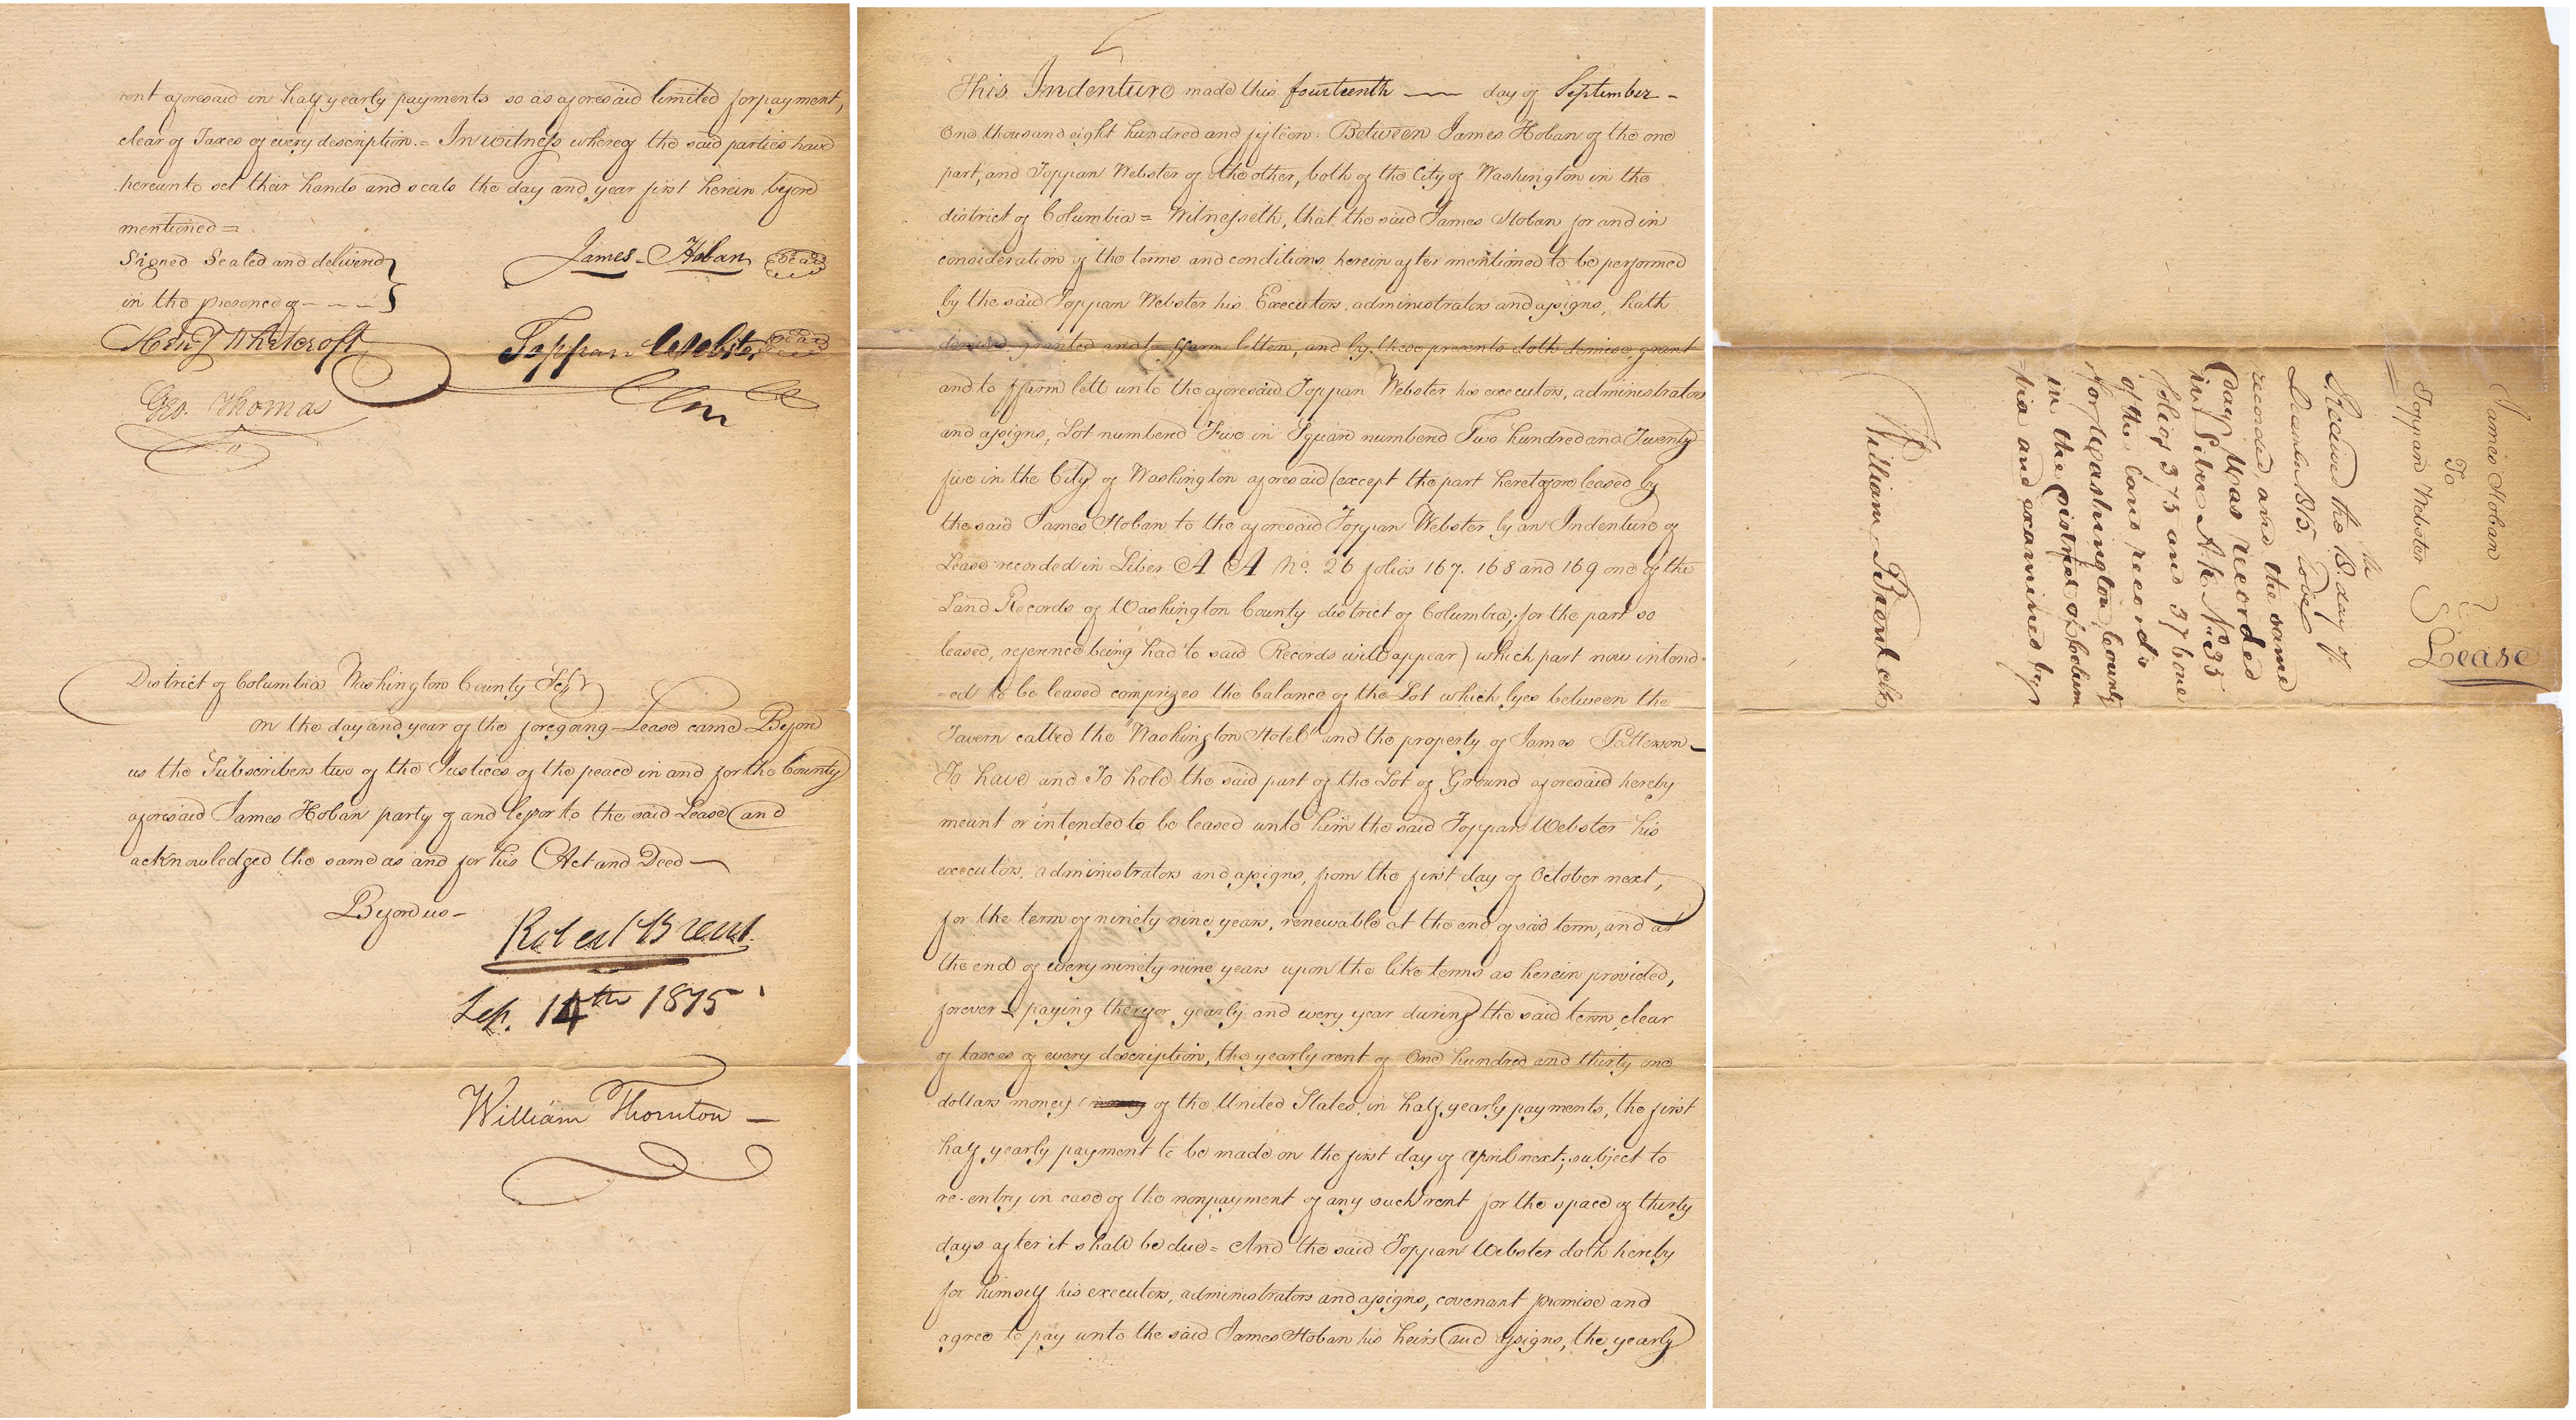 rent aforesaid in half yearly payments so as aforesaid limited for payment,
clear of Taxes of every description.= In witness whereof the said parties have
hereunto set their hands and seals the day and year first herein before
mentioned =
Signed Sealed and delivered
in the presence of - - -
James Hoban seal
Heny Whitcroft
Toppan Webster seal
Geo. Thomas
District of Columbia Washington County
On the day and year of the foregoing Lease came Before
us the Subscribers two of the Justices of the peace in and for the County
aforesaid James Hoban party of and lessor to the said Lease and
acknowledged the same as and for his Act and Deed —
Before us -
Robert Brent
Sep. 14th 1815
William Thornton —
This Indenture made this fourteenth — day of September -
One thousand eight hundred and fifteen: Between James Hoban of the one
part, and Toppan Webster of the other, both of the City of Washington in the
district of Columbia = Witnesseth, that the said James Hoban for and in
consideration of the terms and conditions herein after mentioned to be performed
by the said Toppan Webster his Executors, administrators and assigns, hath
demised granted and to ffarm letten, and by these presents doth demise, grant
and to ffarm lett unto the aforesaid Toppan Webster his executors, administrators
and assigns, Lot numbered Five in Square numbered Two hundred and Twenty
five in the City of Washington aforesaid (except the part heretofore leased by
the said James Hoban to the aforesaid Toppan Webster by an Indenture of
Lease recorded in Liber A A No. 26 folios 167. 168 and 169 one of the
Land Records of Washington County district of Columbia; for the part so
leased, reference being had to said Records will appear) which part now intend-
-ed to be leased comprizes the balance of the Lot which lyes between the
Tavern called the "Washington Hotel" and the property of James Patterson —
To have and To hold the said part of the Lot of Ground aforesaid hereby
meant or intended to be leased unto him the said Toppan Webster his
executors, administrators and assigns, from the first day of October next,
for the term of ninety nine years, renewable at the end of said term, and at
the end of every ninety nine years upon the like terms as herein provided,
forever - paying therefor yearly and every year during the said term, clear
of taxes of every description, the yearly rent of One hundred and thirty one
dollars money of the United States, in half yearly payments, the first
half yearly payment to be made on the first day of April next; subject to
re-entry in case of the nonpayment of any such rent for the space of thirty
days after it shall be due = And the said Toppan Webster doth hereby
for himself his executors, administrators and assigns, covenant promise and
agree to pay unto the said James Hoban his heirs and assigns, the yearly
James Hoban
To
Toppan Webster
Lease
Received the 8th day of
December 1815 to be
recorded, and the same
day was recorded
in Liber A. K. No. 35
folios 375 and 376 one
of the land records
for Washington County
in the District of Colum
bia and examined by
William Brent Clk